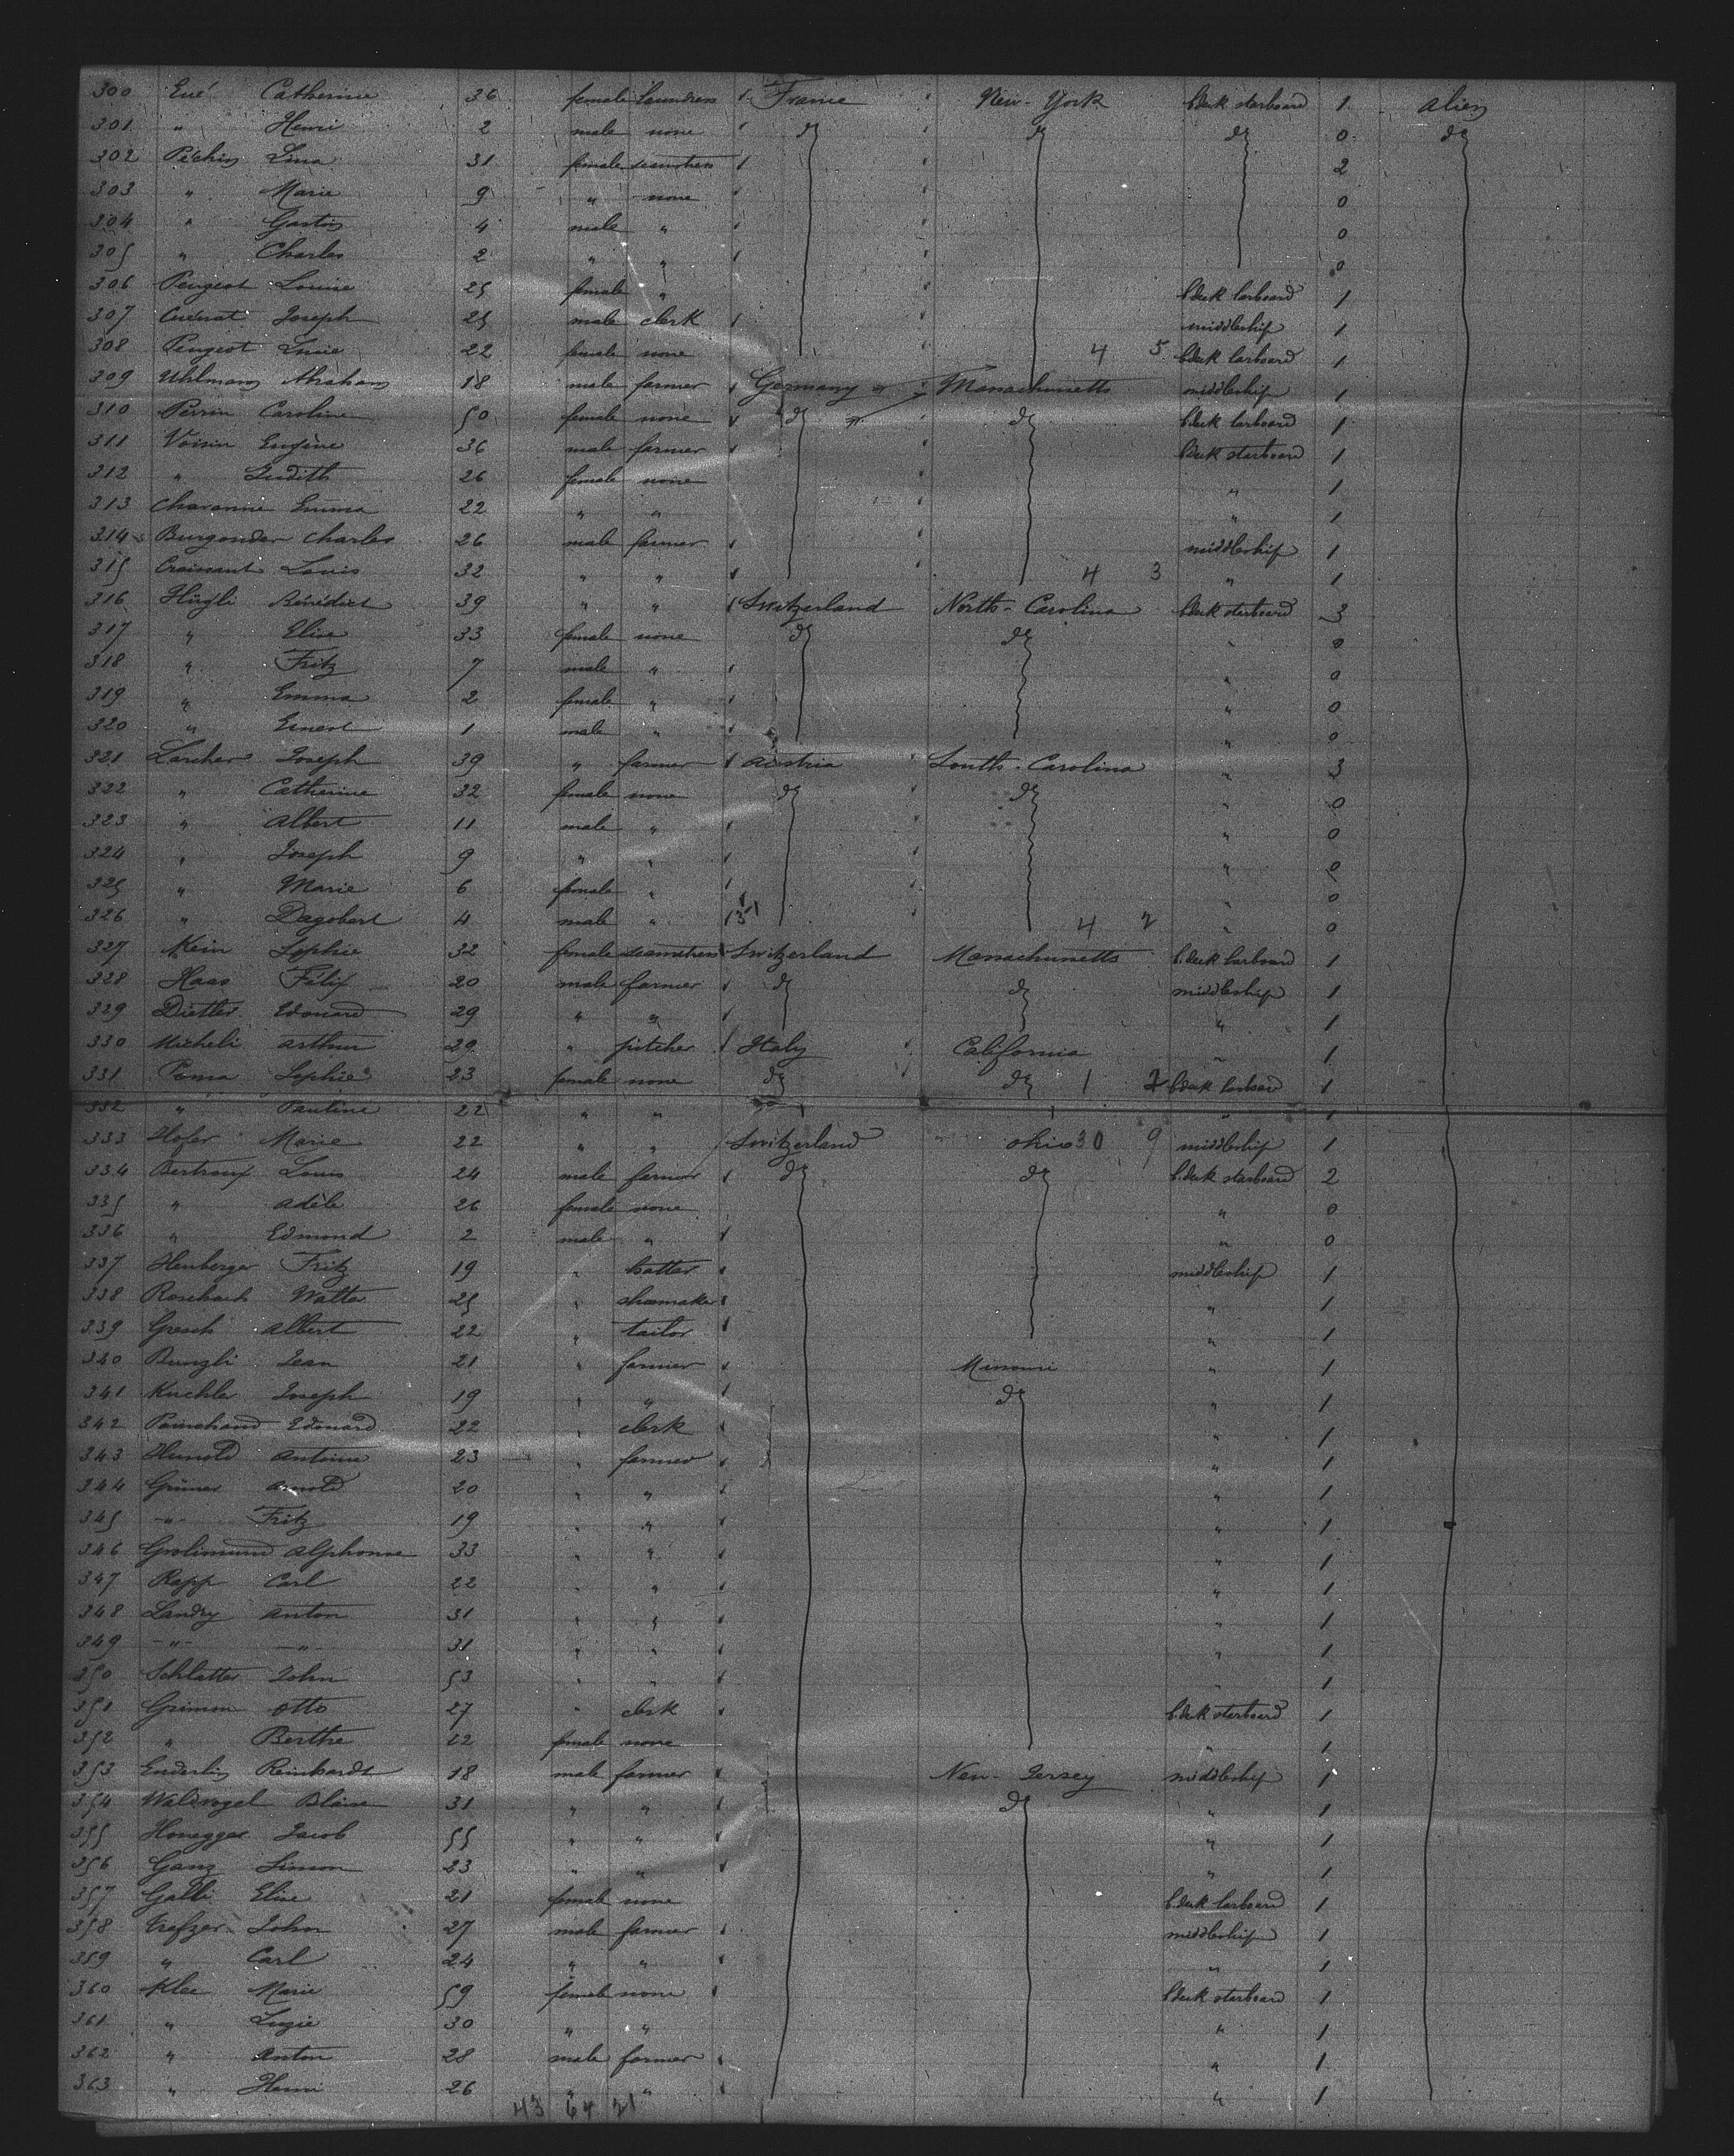 300 Eué Catherine 36 female laundress France New-York bdeck starboard 1 alien
301 " Henri 2 male none do do do 0 do
302 Péchin Lina 31 female seamstress 2
303 " Marie 9 " none 0
304 " Gaston 4 male " 0
305 " Charles 2 " " 0
306 Peugeot Louise 25 female " bdeck larboard 1
307 Cuderat Joseph 25 male clerk middleship 1
308 Peugeot Lucie 22 female none 4 5 bdeck larboard 1
309 Uhlmann Abraham 18 male farmer Germany Massachusetts middleship 1
310 Perrin Caroline 50 female none do do bdeck larboard 1
311 Voisin Eugène 36 male farmer bdeck starboard 1
312 " Judith 26 female none " 1
313 Charanine Emma 22 " " " 1
314 Burgunder Charles 26 male farmer middleship 1
315 Croissant Louis 32 " " 4 3 " 1
316 Hügli Bénédict 39 " " Switzerland North-Carolina bdeck starboard 3
317 " Elise 33 female none do do " 0
318 " Fritz 7 male " " 0
319 " Emma 2 female " " 0
320 " Ernest 1 male " " 0
321 Larcher Joseph 39 " farmer Austria South-Carolina " 3
322 " Catherine 32 female none do do " 0
323 " Albert 11 male " " 0
324 " Joseph 9 " " " 0
325 " Marie 6 female " " 0
326 " Dagobert 4 male " 4 2 " 0
327 Klein Sophie 32 female seamstress Switzerland Massachusetts bdeck larboard 1
328 Haas Felix 20 male farmer do do middleship 1
329 Dietler Edouard 29 " " " 1
330 Micheli Arthur 29 " pitcher Italy California " 1
331 Poma Sophie 23 female none do do 1 2 bdeck larboard 1
332 " Pauline 22 " " " 1
333 Hofer Marie 22 " " Switzerland Ohio 30 9 middleship 1
334 Bertroux Louis 24 male farmer do do bdeck starboard 2
335 " Adèle 26 female none " 0
336 " Edmond 2 male " " 0
337 Heuberger Fritz 19 " hatter middleship 1
338 Roschach Walter 25 " shoemaker " 1
339 Gresch Albert 22 " tailor " 1
340 Bunzli Jean 21 " farmer Missouri " 1
341 Kuchler Joseph 19 " " do " 1
342 Painchaud Edouard 22 " clerk " 1
343 Hunold Antoine 23 " farmer " 1
344 Grüner Arnold 20 " " " 1
345 -"- Fritz 19 " " " 1
346 Grolimund Alphonse 33 " " " 1
347 Rapp Carl 22 " " " 1
348 Landry Anton 31 " " " 1
349 -"- -"- 31 " " " 1
350 Schlatter John 53 " " " 1
351 Grimm Otto 27 " clerk bdeck starboard 1
352 " Berthe 22 female none " 1
353 Enderlin Reinhardt 18 male farmer New-Jersey middleship 1
354 Waldvogel Blaise 31 " " do " 1
355 Honegger Jacob 55 " " " 1
356 Ganz Simon 23 " " " 1
357 Galli Elise 21 female none bdeck larboard 1
358 Trefzer John 27 male farmer middleship 1
359 " Carl 24 " " " 1
360 Klee Marie 59 female none bdeck starboard 1
361 " Luzie 30 " " " 1
362 " Anton 28 male farmer " 1
363 " Henri 26 " " " 1
43 64 21